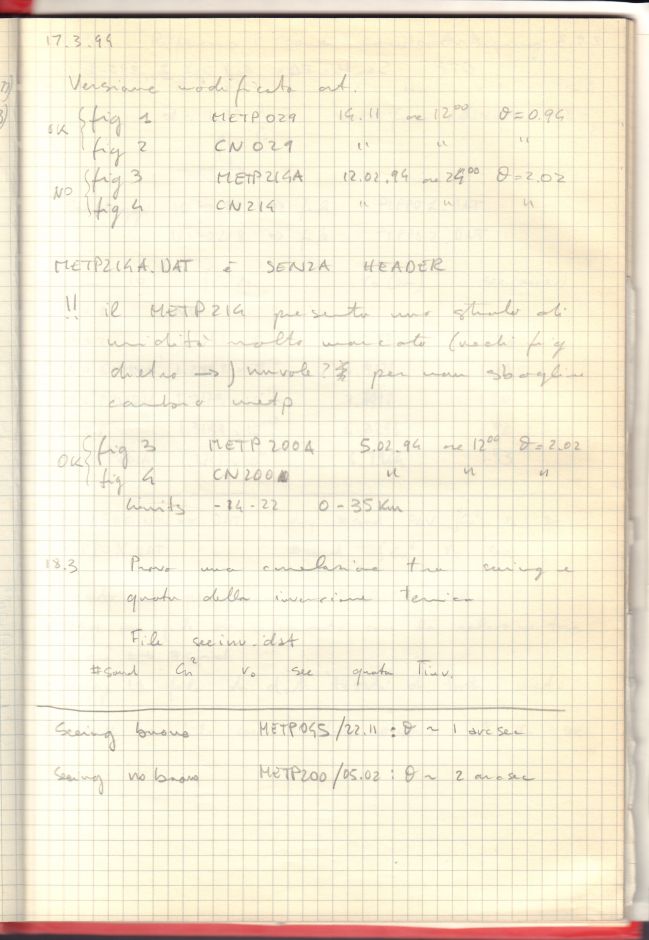 17.3.94
Versione modificata art.
OK { fig 1 METP029 14.11 ore 12⁰⁰ θ=0.94
fig 2 CN029 " " "
NO { fig 3 METP214A 12.02.94 ore 24⁰⁰ θ=2.02
fig 4 CN214 " " "
METP214A.DAT è SENZA HEADER
!! il METP214 presenta uno strato di
umidità molto marcato (vedi fig
dietro →) nuvole? per non sbagliare
cambio metp
OK { fig 3 METP200A 5.02.94 ore 12⁰⁰ θ=2.02
fig 4 CN200 " " "
Limits -14-22 0-35 Km
18.3 Provo una correlazione tra seeing e
quota della inversione termica
File seeinv.dat
#sond Cn² r₀ see quota Tinv.
Seeing buono METP045/22.11 : θ ~ 1 arcsec
Seeing no buono METP200/05.02 : θ ~ 2 arcsec